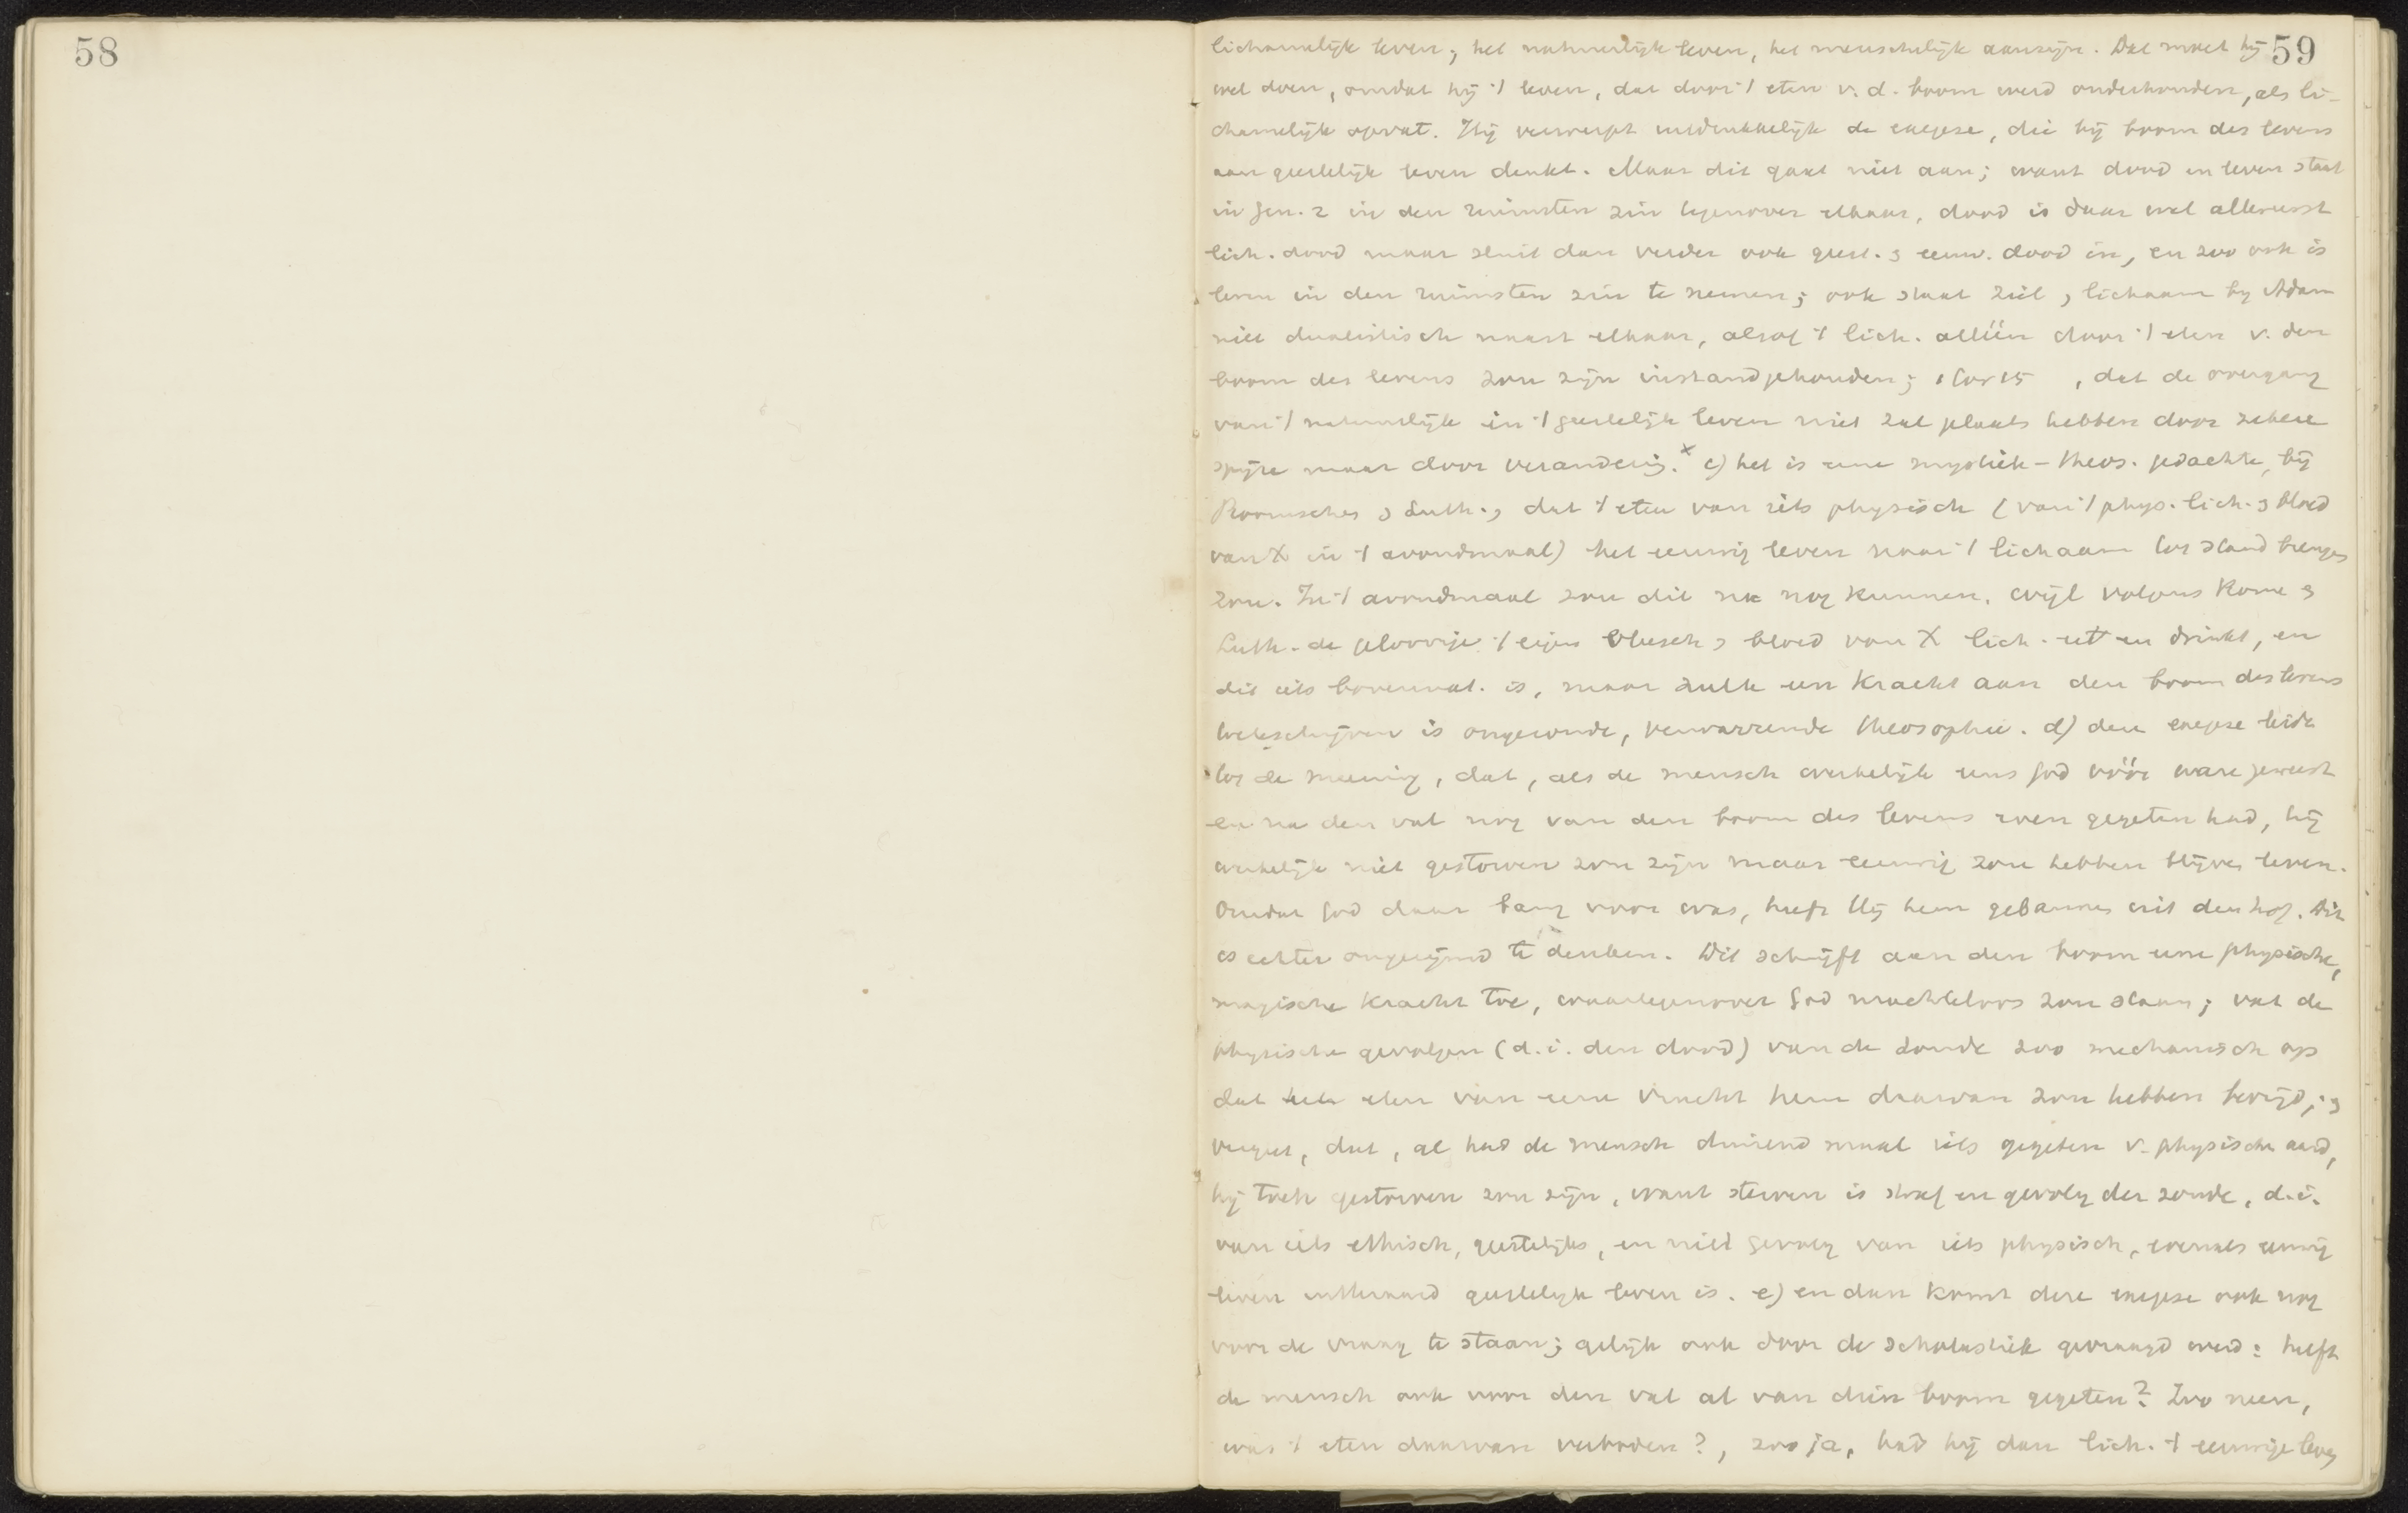 58
59
lichamelijk leven; het natuurlijk leven, het menschelijk aanzijn. Dat moet hij
wel doen, omdat hij 't leven, dat door 't eten v. d. boom werd onderhouden, als li-
chamelijk opvat. Hij verwerpt uitdrukkelijk de exegese, die bij boom des levens
aan geestelijk leven denkt. Maar dit gaat niet aan; want dood en leven staat
in Gen. 2 in den ruimsten zin tegenover elkaar, dood is daar wel allereerst
lich. dood maar sluit dan verder ook geest. & eeuw. dood in, en zoo ook is
leven in den ruimsten zin te nemen; ook staat ziel & lichaam bij Adam
niet dualistisch naast elkaar, alsof 't lich. alléén door 't eten v. den
boom des levens zou zijn instandgehouden; 1 Cor 15 , dat de overgang
van 't natuurlijk in 't geestelijk leven niet zal plaats hebben door zekere
spijze maar door verandering.x c) het is eene mystiek-theos. gedachte, bij
Roomschen & Luth., dat 't eten van iets physisch (van 't phys. lich. & bloed
van X in 't avondmaal) het eeuwig leven naar 't lichaam tot stand brengen
zou. In 't avondmaal zou dit nog kunnen, wijl volgens Rome &
Luth. de geloovige 't eigen vleesch & bloed van X lich. eet en drinkt, en
dit iets bovennat. is, maar zulk een kracht aan den boom des levens
toeschrijven is ongezonde, verwarrende theosophie. d) deze exegese leidt
tot de meening, dat, als de mensch werkelijk eens God vóór ware geweest
en na den val nog van den boom des levens even gegeten had, hij
werkelijk niet gestorven zou zijn maar eeuwig zou hebben blijven leven.
Omdat God daar bang voor was, heeft Hij hem gebannen uit den hof. Dit
is echter ongerijmd te denken. Dit schrijft aan den boom eene physische,
magische kracht toe, waartegenover God machteloos zou staan; vat de
physische gevolgen (d.i. den dood) van de zonde zoo mechanisch op
dat eten van eene vrucht hem daarvan zou hebben bevrijd; &
vergeet, dat, al had de mensch duizend maal iets gegeten v. physischen aard,
hij toch gestorven zou zijn, want sterven is straf en gevolg der zonde, d.i.
van iets ethisch, geestelijks, en niet gevolg van iets physisch, evenals eeuwig
leven uiteraard geestelijk leven is. e) en dan komt deze exegese ook nog
voor de vraag te staan; gelijk ook door de scholastiek gevraagd werd: heeft
de mensch ook voor den val al van dien boom gegeten? Zoo neen,
was 't eten daarvan verboden?, zoo ja, had hij dan lich. 't eeuwige leven